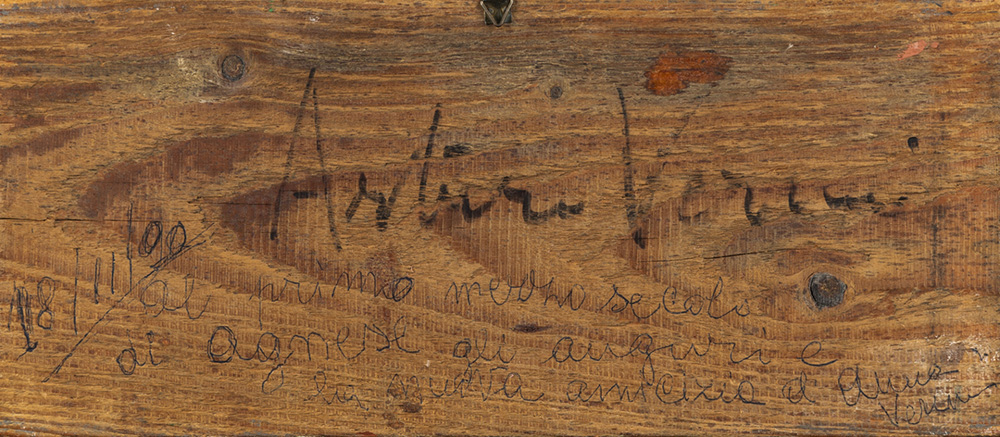 Arturo Vermi
18/11/00
al primo mezzo secolo
di agnese gli auguri e
la nuova amicizia d'Anna
Vermi